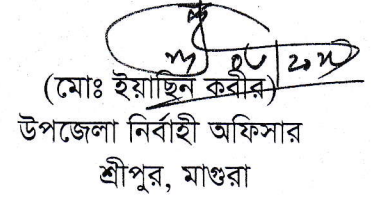 (মোঃ ইয়াছিন কবীর)
উপজেলা নির্বাহী অফিসার
শ্রীপুর, মাগুরা